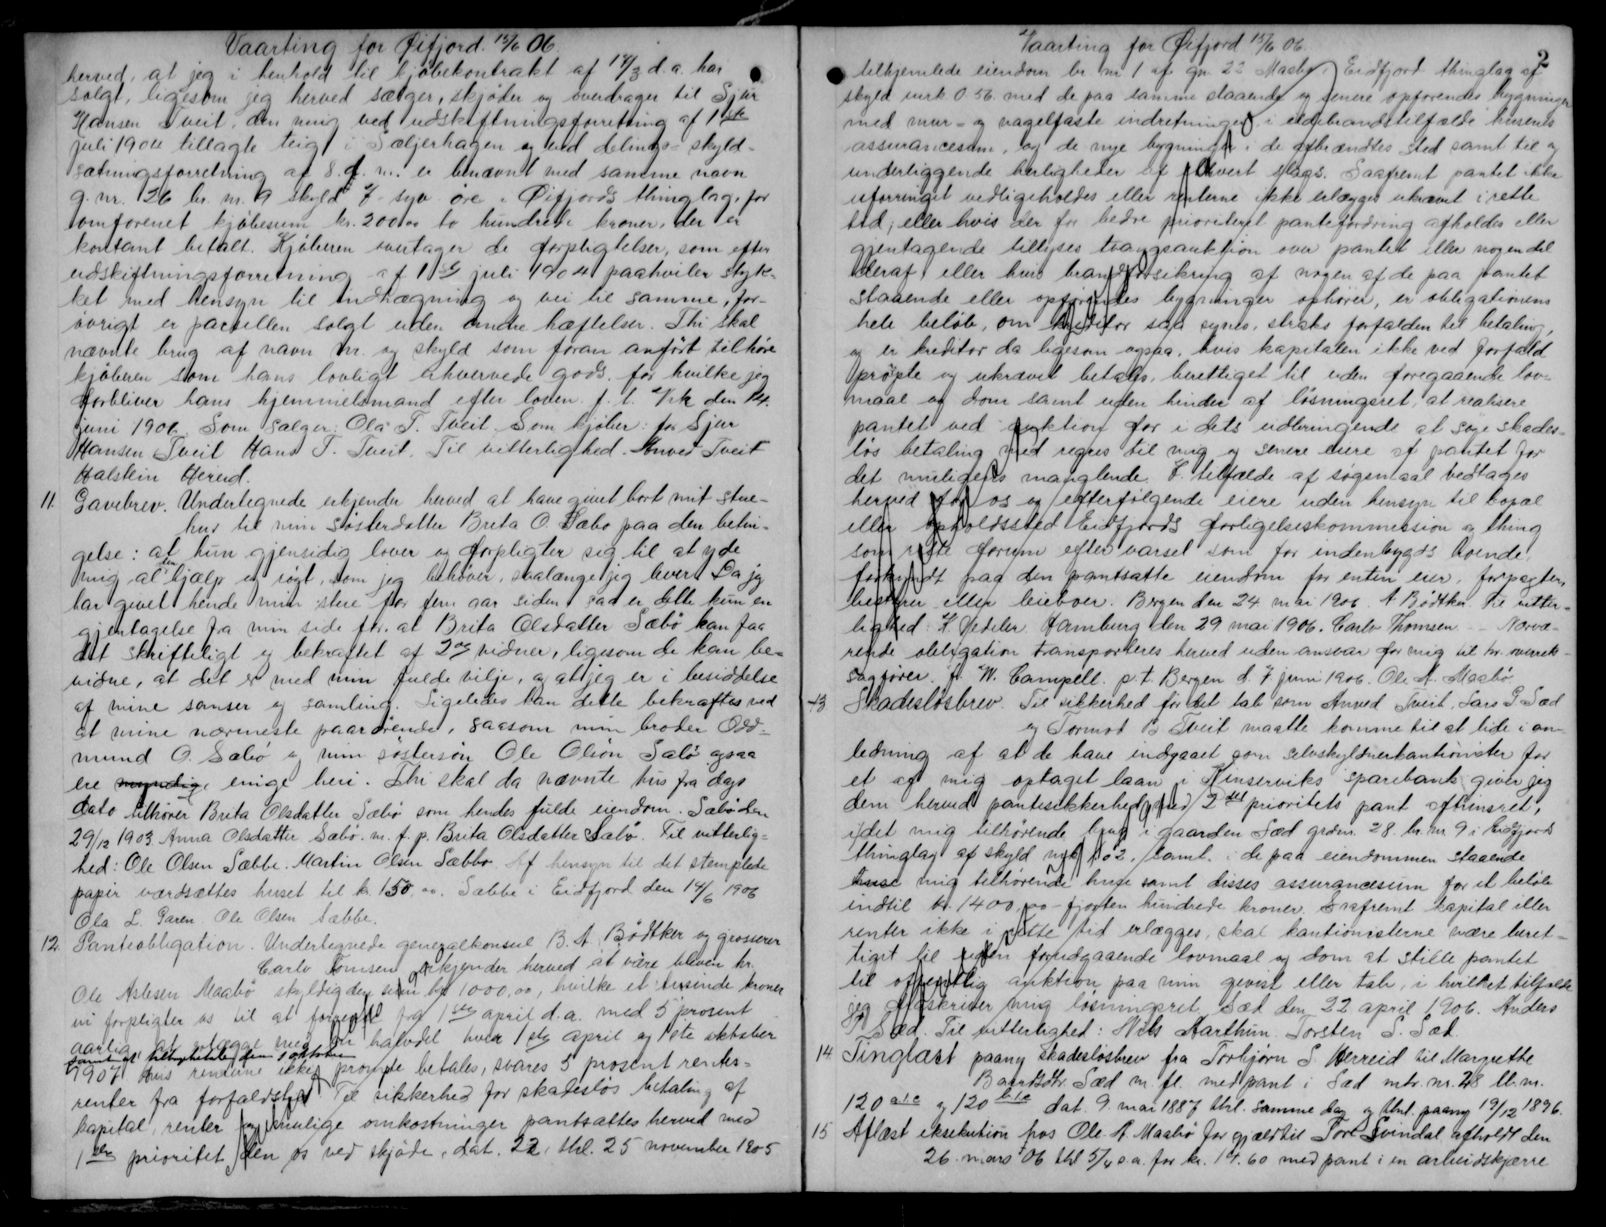 Vaarting for Øifjord 15/6 06.
herved, at jeg i henhold til kjøbekontrakt af 14/3 d.a. har
solgt, ligesom jeg herved sælger, skjøder og overdrager til Sjur
Hansen Tveit, den mig ved udskiftningsforretning af 1ste
juli 1904 tillagte teig i Sæljerhagen og ved delings= skyld=
sætningsforretning af 8. d. m. er benævnt med samme navn
g.nr. 26 br. nr. 9 skyld 7 - syv øre i Øifjords thinglag, for
omforenet kjøbesum kr. 200.00 to hundrede kroner, der er
kontant betalt. Kjøberen overtager de forpligtelser, som efter
udskiftningsforretning af 1ste juli 1904 paahviler styk=
ket med hensyn til indhægning og vei til samme, for=
øvrigt er parcellen solgt uden andre hæftelser. Thi skal
nævnte brug af navn nr. og skyld som foran anført tilhøre
kjøberen som hans lovligt erhvervede gods, for hvilke jeg
forbliver hans hjemmelsmand efter loven. p. t. Vik den 14.
juni 1906. Som sælger: Ola T. Tveit. Som kjøber: for Sjur
Hansen Tveit Hans T. Tveit. Til vitterlighed. Anved Tveit
Halstein Hereid.
11. Gavebrev. Undertegnede erkjender herved at have givet bort mit stue=
hus til min søsterdatter Brita O. Sæbø paa den betin=
gelse: at hun gjensidig lover og forpligter sig til at yde
mig al den hjælp og røgt, som jeg behøver, saalænge jeg lever. Da jeg
har givet hende min stue for fem aar siden, saa er dette kun en
gjentagelse fra min side for at Brita Olsdatter Sæbø kan faa
det skrifteligt og bekræftet af 2de vidner, ligesom de kan be=
vidne, at det er med min fulde vilje, og at jeg er i besiddelse
af mine sanser og samling. Ligeledes kan dette bekræftes ved
at mine nærmeste paarørende, saasom min broder Odd=
mund O. Sæbø og min søstersøn Ole Olsøn Sæbø ogsaa
ere enige heri. Thi skal da nævnte hus fra dags
dato tilhører Brita Olsdatter Sæbø som hendes fulde eiendom. Sæbø den
29/12 1903 Anna Olsdatter Sæbø. m. f. p. Brita Olsdatter Sæbø. Til vitterlig=
hed: Ole Olsen Sæbbe. Martin Olsen Sæbbø. Af hensyn til det stemplede
papir værdsættes huset til k. 150.00. Sæbbe i Eidfjord den 14/6 1906
Ola L. Garen. Ole Olsen Sæbbe.
12. Panteobligation. Undertegnede generalkonsul B. A. Bødtker og grosserer
Carlo Tomsen erkjender herved at være bleven hr.
Ole Aslesen Maabø skyldig den sum kr 1000,00, hvilke et tusinde kroner
vi forpligter os til at forrente fra 1ste april d.a. med 5 prosent
aarlig, at erlægge med en halvdel hver 1ste april og 1ste oktober
samt at tilbagebetale den 1 oktober
1907 Hvis renterne ikke prompte betales, svares 5 prosent rentes=
renter fra forfaldstid Til sikkerhed for skadesløs betaling af
kapital, renter og mulige omkostninger pantsættes herved med
1ste prioritet den os ved skjøde, dat. 22, thl. 25 november 1905
Vaarting for Øifjord 15/6 06.
2
tilhjemlede eiendom br. nr 1 af gn. 23 Maabø i Eidfjord thinglag af
skyld mrk. 0.56. med de paa samme staaende og senere opførendes bygninger
med mur= og nagelfaste indretninger, i ildebrandstilfælde husenes
assurancesum, og de nye bygninger i de afbrændtes sted samt til og
underliggende herligheder af hvert slags. Saafremt pantet ikke
uforringet vedligeholdes eller renterne ikke erlægges ukrævet i rette
tid; eller hvis der for bedre prioriteret pantefordring afholdes eller
gjentagende tillyses tvangsauktion over pantet eller nogen del
deraf, eller hvis brandforsikring af nogen af de paa pantet
staaende eller opførendes bygninger ophører, er obligationens
hele beløb, om kreditor saa synes, straks forfalden til betaling,
og er kreditor da ligesom ogsaa, hvis kapitalen ikke ved forfald
prompte og ukrævet betales, berettiget til uden foregaaende lov=
maal og dom samt uden hinder af løsningsret, at realisere
pantet ved auktion for i dets udbringende at søge skades=
løs betaling med regres til mig og senere eiere af pantet for
det muligens manglende. I tilfælde af søgsmaal vedtages
herved for os og efterfølgende eiere uden hensyn til bopæl
eller opholdssted Eidfjords forligelseskommission og thing
som rette forum efter varsel som for indenbygds boende
forkyndt paa den pantsatte eiendom for enten eier, forpagter,
bestyrer eller leieboer. Bergen den 24 mai 1906. A Bødtker. Til vitter=
lighed: K Vedeler. Hamburg den 29 mai 1906. Carlo Thomsen - Nærvæ-
rende obligation transporteres herved uden ansvar for mig til hr. overrets-
sagfører. J. W. Campell. p.t. Bergen d. 7 juni 1906. Ole A. Maabø
13 Skadesløsbrev. Til sikkerhed for det tab som Anved Tveit, Lars G. Sæd
og Tormod B Tveit maatte komme til at lide i an-
ledning af at de have indgaaet som selvskyldnerkautionister for
et af mig optaget laan i Kinserviks sparebank giver jeg
dem herved pantesikkerhed med 2det prioritets pant opftrinsret,
i det mig tilhørende brug i gaarden Sæd grdnr. 28. br. nr 9 i Eidfjords
thinglag af skyld mrk 1.02. samt i de paa eiendommen staaende
mig tilhørende huse samt disses assurancesum for et beløb
indtil kr. 1400.00 - fjorten hundrede kroner. Saafremt kapital eller
renter ikke i rette tid erlægges, skal kautionisterne være beret-
tiget til uden forudgaaende lovmaal og dom at stille pantet
til offentlig auktion paa min gevinst eller tab, i hvilket tilfælde
jeg fraskriver mig løsningsret. Sæd den 22 april 1906. Anders
P Sæd. Til vitterlighed: Nils Aarthun. Torsten S. Sæd
14 Tinglæst paany skadesløsbrev fra Torbjørn S. Herreid til Margrethe
Baardsdtr. Sæd m. fl. med pant i Sæd mtr. nr. 28 lb. nr.
120 a1c og 120 b1c dat. 9 mai 1887 thl. samme dag og thnl. paany 19/12 1896.
15 Aflæst eksekution hos Ole A. Maabø for gjæld til Tore Svindal afholdt den
26. mars 06 thl 5/4 s.a. for kr. 14.60 med pant i en arbeidskjærre